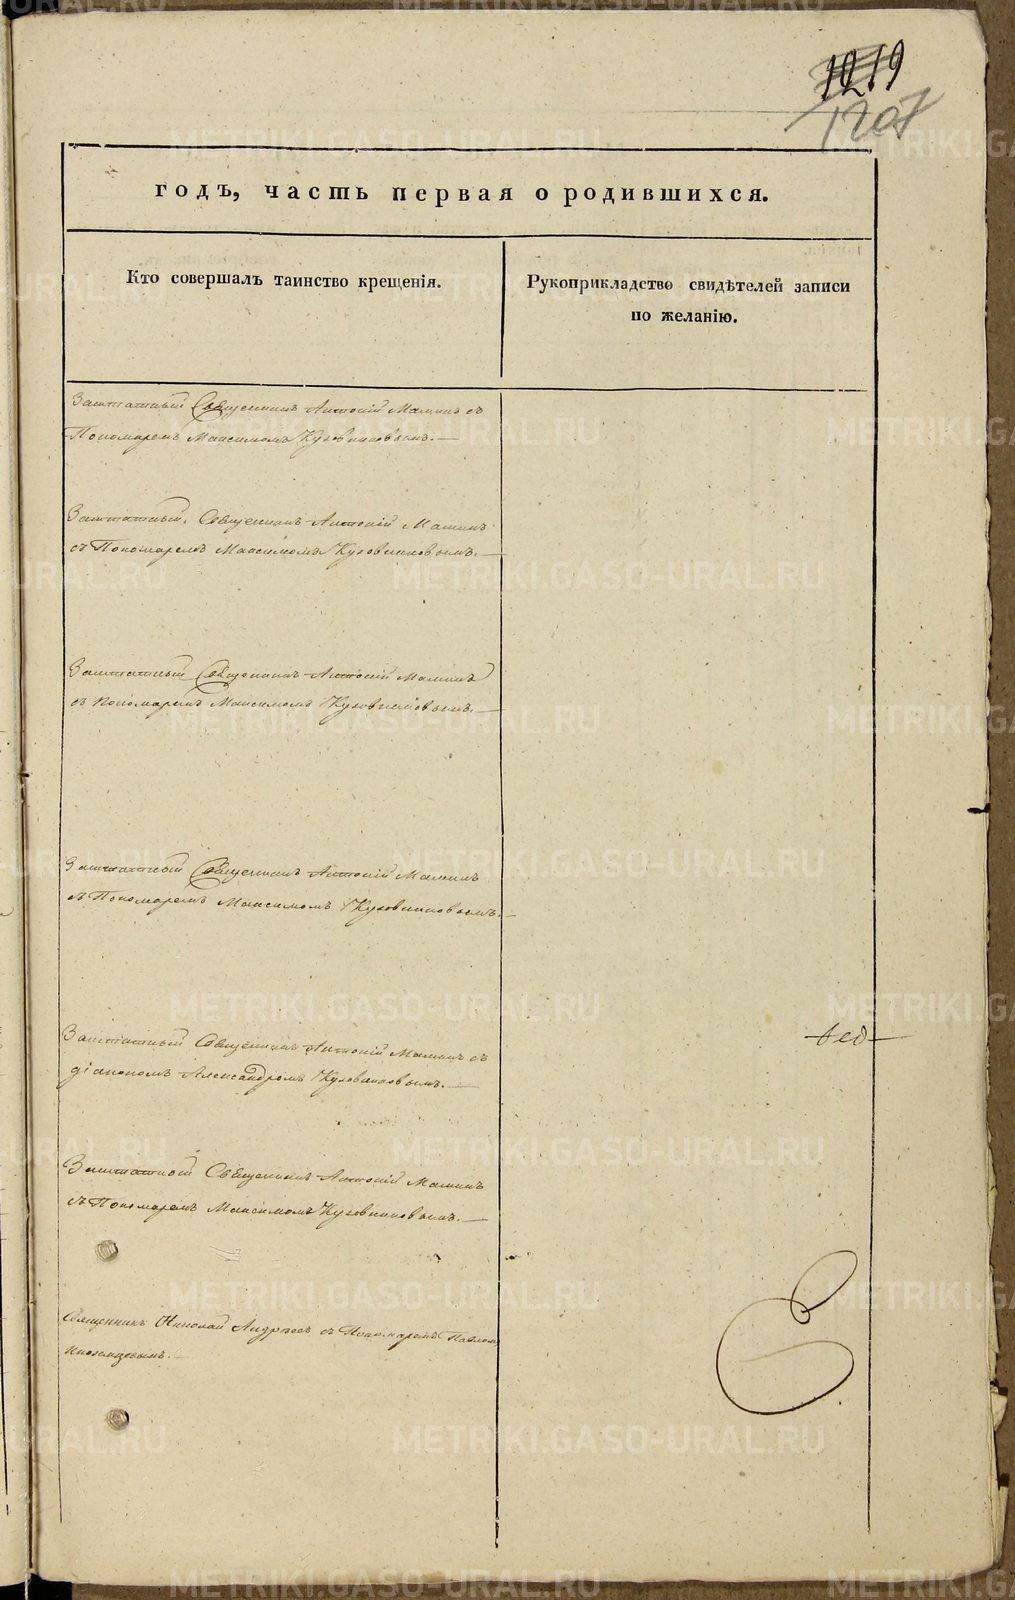 1219
1207
годъ, часть первая о родившихся.
Кто совершалъ таинство крещенія.
Рукоприкладство свидѣтелей записи
по желанію.
Заштатный Священникъ Антоній Маминъ съ
Пономаремъ Максимомъ Кузовниковымъ.
Заштатный Священникъ Антоній Маминъ
съ Пономаремъ Максимомъ Кузовниковымъ.
Заштатный Священникъ Антоній Маминъ
съ Пономаремъ Максимомъ Кузовниковымъ.
Заштатный Священникъ Антоній Маминъ
съ Пономаремъ Максимомъ Кузовниковымъ.
Заштатный Священникъ Антоній Маминъ съ
діакономъ Александромъ Кузовниковымъ.
Заштатной Священникъ Антоній Маминъ
съ Пономаремъ Максимомъ Кузовниковымъ.
Священникъ Николай Андреевъ съ Пономаремъ Павломъ
Иноземцовымъ.
METRIKI.GASO-URAL.RU